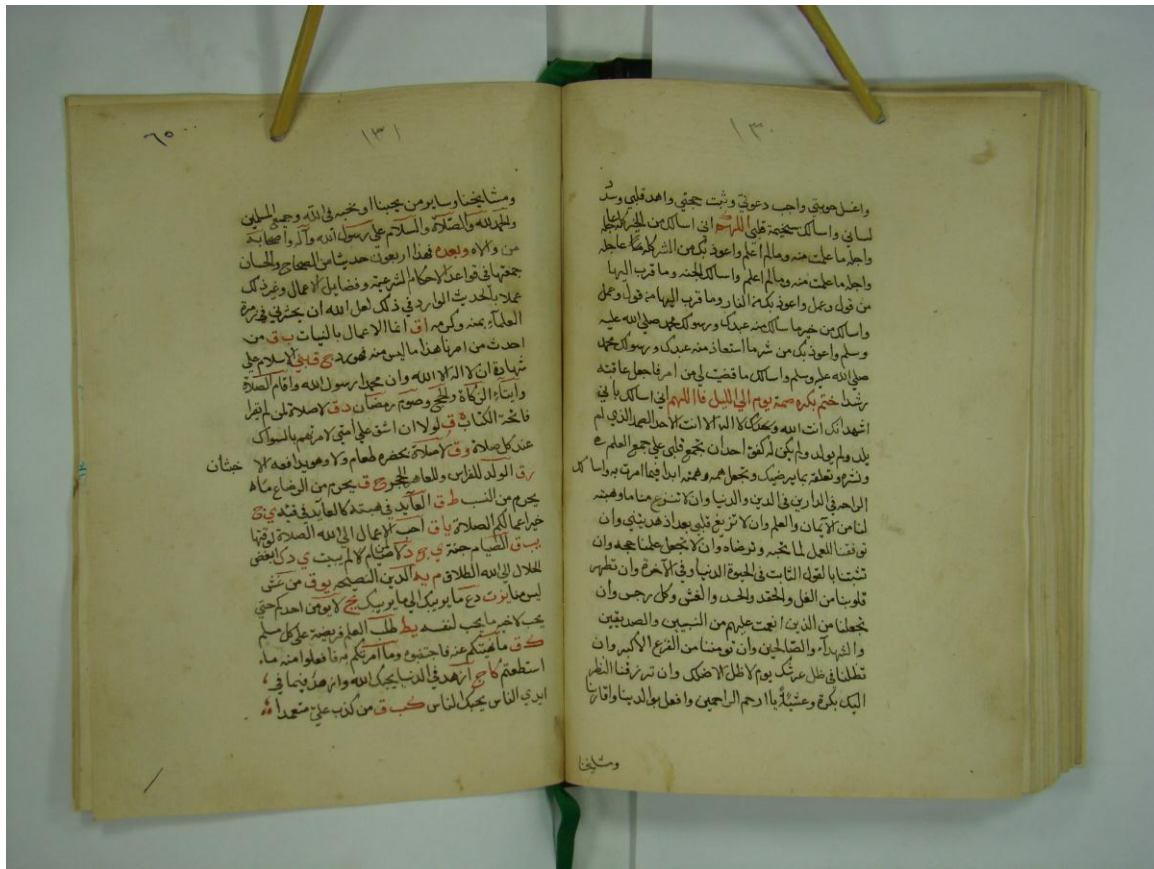 ١٣٠
واغسل حوبتي واجب دعوتي وثبت حجتي واهد قلبي وسدد
لساني واسالك سخيمة قلبي اللهم اني اسالك من الخير كله عاجله
واجله ما علمت منه ومالم اعلم واعوذ بك من الشر كله عاجله
واجله ما علمت منه ومالم اعلم واسالك الجنه وما قرب اليها
من قول وعمل واعوذ بك من النار وما قرب اليها من قول وعمل
واسالك من خير ما سالك منه عبدك ورسولك محمد صلي الله عليه
وسلم واعوذ بك من شر ما استعاذ منه عبدك ورسولك محمد
صلي الله عليه وسلم واسالك ما قضيت لي من امر فاجعل عاقبته
رشدا ختم بكره صمة يوم الي الليل فا اللهم اني اسالك باني
اشهد انك انت الله وحدك لا اله الا انت الاحد الصمد الذي لم
يلد ولم يولد ولم يكن له كفوا احد ان تجمع قلبي علي جمع العلم
ونشره وتعلقه بما يرضيك وتجعل همه وهمته ابدا فيما امرت به واسالك
الراحه في الدارين في الدين والدنيا وان لا تنزع منا ما وهبته
لنا من الايمان والعلم وان لا تزيغ قلبي بعد اذ هديتني وان
توفقنا للعمل لما تحبه وترضاه وان لا تجعل علمنا حجه وان
تثبتنا بالقول الثابت في الحيوة الدنيا وفي الاخرة وان تطهر
قلوبنا من الغل والحقد والحسد والغش وكل رجس وأن
تجعلنا من الذين انعمت عليهم من النبيين والصديقين
والشهدآء والصالحين وان تومننا من الفزع الاكبر وان
تظلنا في ظل عرشك يوم لا ظل الا ظلك وان ترزقنا النظر
اليك بكرة وعشية يا ارحم الراحمين وافعل بوالدينا واقاربنا
ومشايخنا
١٣١
٦٥
ومشايخنا وسايرو من يحبنا او نحبه في الله وجميع المسلمين
والحمد لله والصلاة والسلام علي رسول الله وآله واصحابه
من والاه وبعده فهذا اربعون حديثا من الصحاح والحسان
جمعتها في قواعد الاحكام الشرعية وفضايل الاعمال وغير ذلك
عملا بالحديث الوارد في ذلك لعل الله ان يحشرني في زمرة
العلمآء بمنه وكرمه اق انما الاعمال بالنيات ب ق من
احدث من امرنا هذا ما ليس منه فهو رد ج ق بني الاسلام علي
شهادة ان لا اله الا الله وان محمدا رسول الله واقام الصلاة
وايتآء الزكاة والحج وصوم رمضان د ق لا صلاة لمن لم يقرا
فاتحة الكتاب ه ق لولا ان اشق علي أمتي لامرتهم بالسواك
عند كل صلاة و ق لا صلاة بحضره طعام ولا وهو يدافعه الا خبثان
ز ق الولد للفراس وللعاهر الحجر ح ق يحرم من الرضاع ما
يحرم من النسب ط ق العآيد في هبته كالعايد في قيئه ي ح
خير اعمالكم الصلاة يا ق أحب الاعمال الي الله الصلاة لوقتها
يب ق الصيام جنة لا صيام لا لم يبيت ي د ك ابغض
الحلال الي الله الطلاق م يه الدين النصيحه يو ق من غش
ليس منا يز ت دع ما يريبك الي ما لا يريبك يح لا يومن احدكم حتي
يحب لاخيه ما يحب لنفسه يط طلب العلم فريضة علي كل مسلم
ك ق ما نهيتكم عنه فاجتنبوه وما آمرتكم به فافعلوا منه ما
استطعتم كا ج ازهد في الدنيا يحبك الله وازهد فيما في
ايدي الناس يحبك الناس كب ق من كذب علي متعمدا